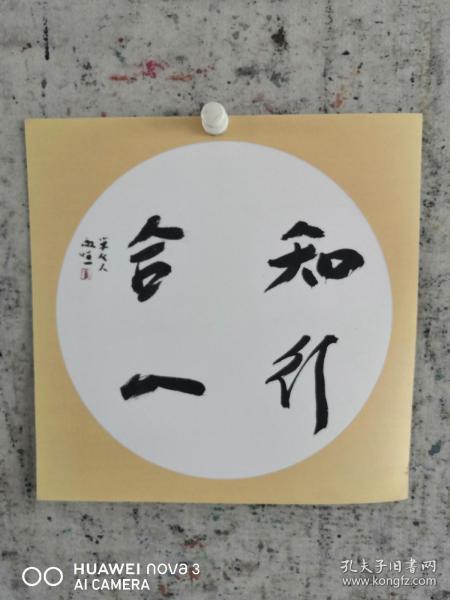 知行
合一
HUAWEI nova 3
AI CAMERA
孔夫子旧书网
www.kongfz.com